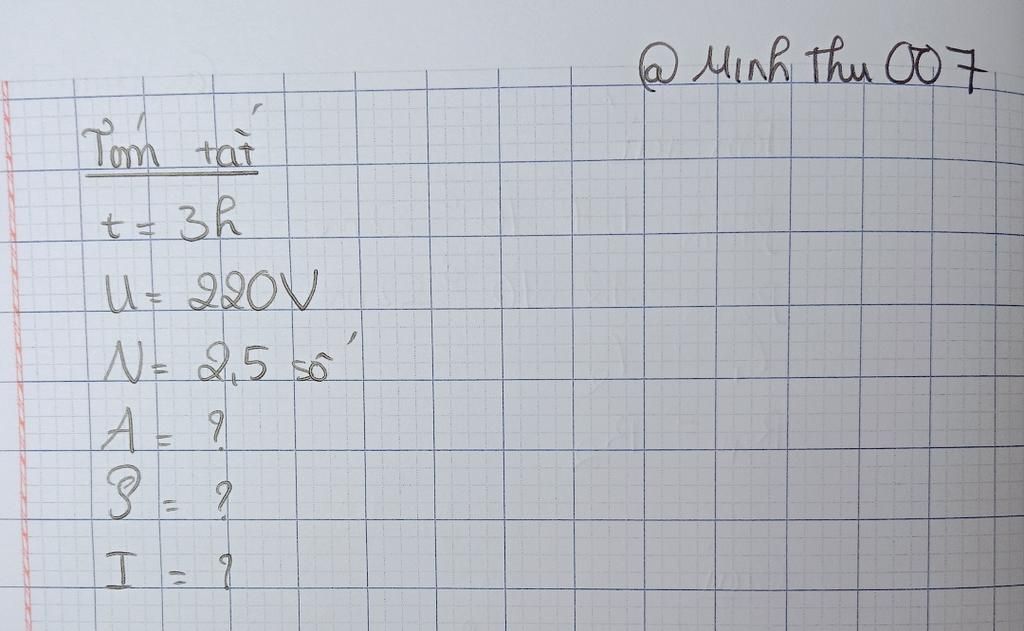 @ Minh Thu 007
Tóm tắt
t = 3h
U = 220V
N = 2,5 số
A = ?
P = ?
I = ?